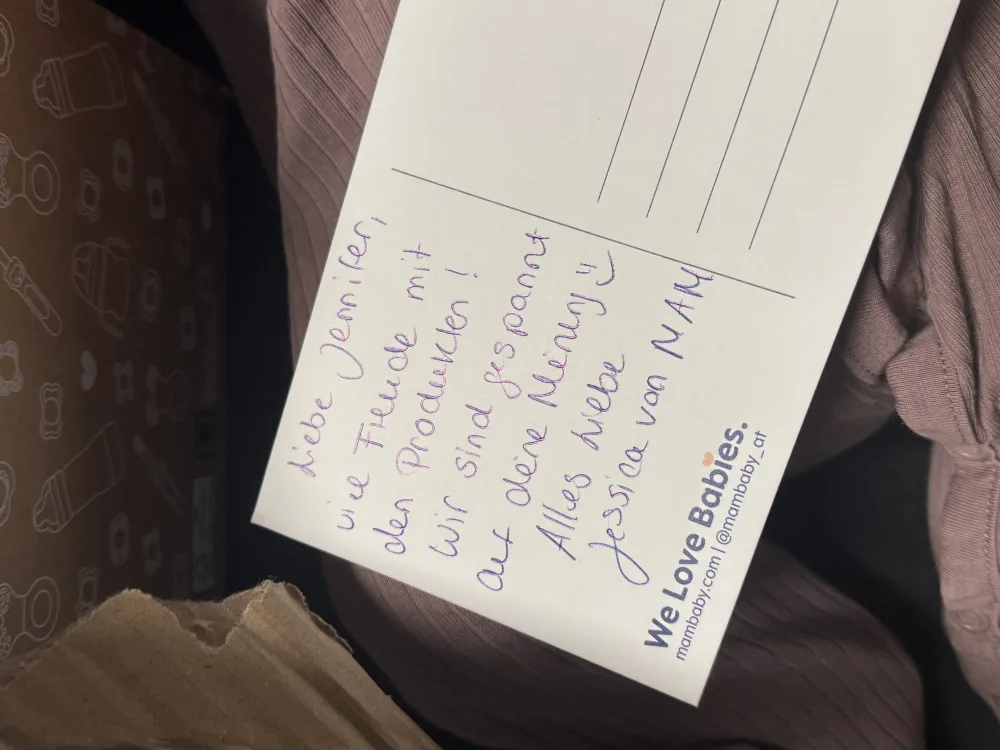 Liebe Jennifer,
viel Freude mit
den Produkten!
Wir sind gespannt
auf deine Meinung :)
Alles Liebe
Jessica von MAM
We Love Babies.
mambaby.com | @mambaby_at